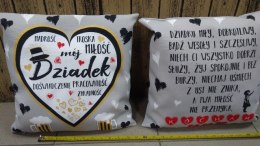 MĄDROŚĆ TROSKA
MIŁOŚĆ
mój
Dziadek
DOŚWIADCZENIE PRACOWITOŚĆ
ZARADNOŚĆ
DZIADKU MÓJ, DOBROTLIWY,
BĄDŹ WESOŁY I SZCZĘŚLIWY,
NIECH CI WSZYSTKO DOBRZE
SŁUŻY, ŻYJ SPOKOJNIE I BEZ
BURZY. NIECHAJ UŚMIECH
Z UST NIE ZNIKA,
A TWA MIŁOŚĆ
NIE PRZEMIJA.